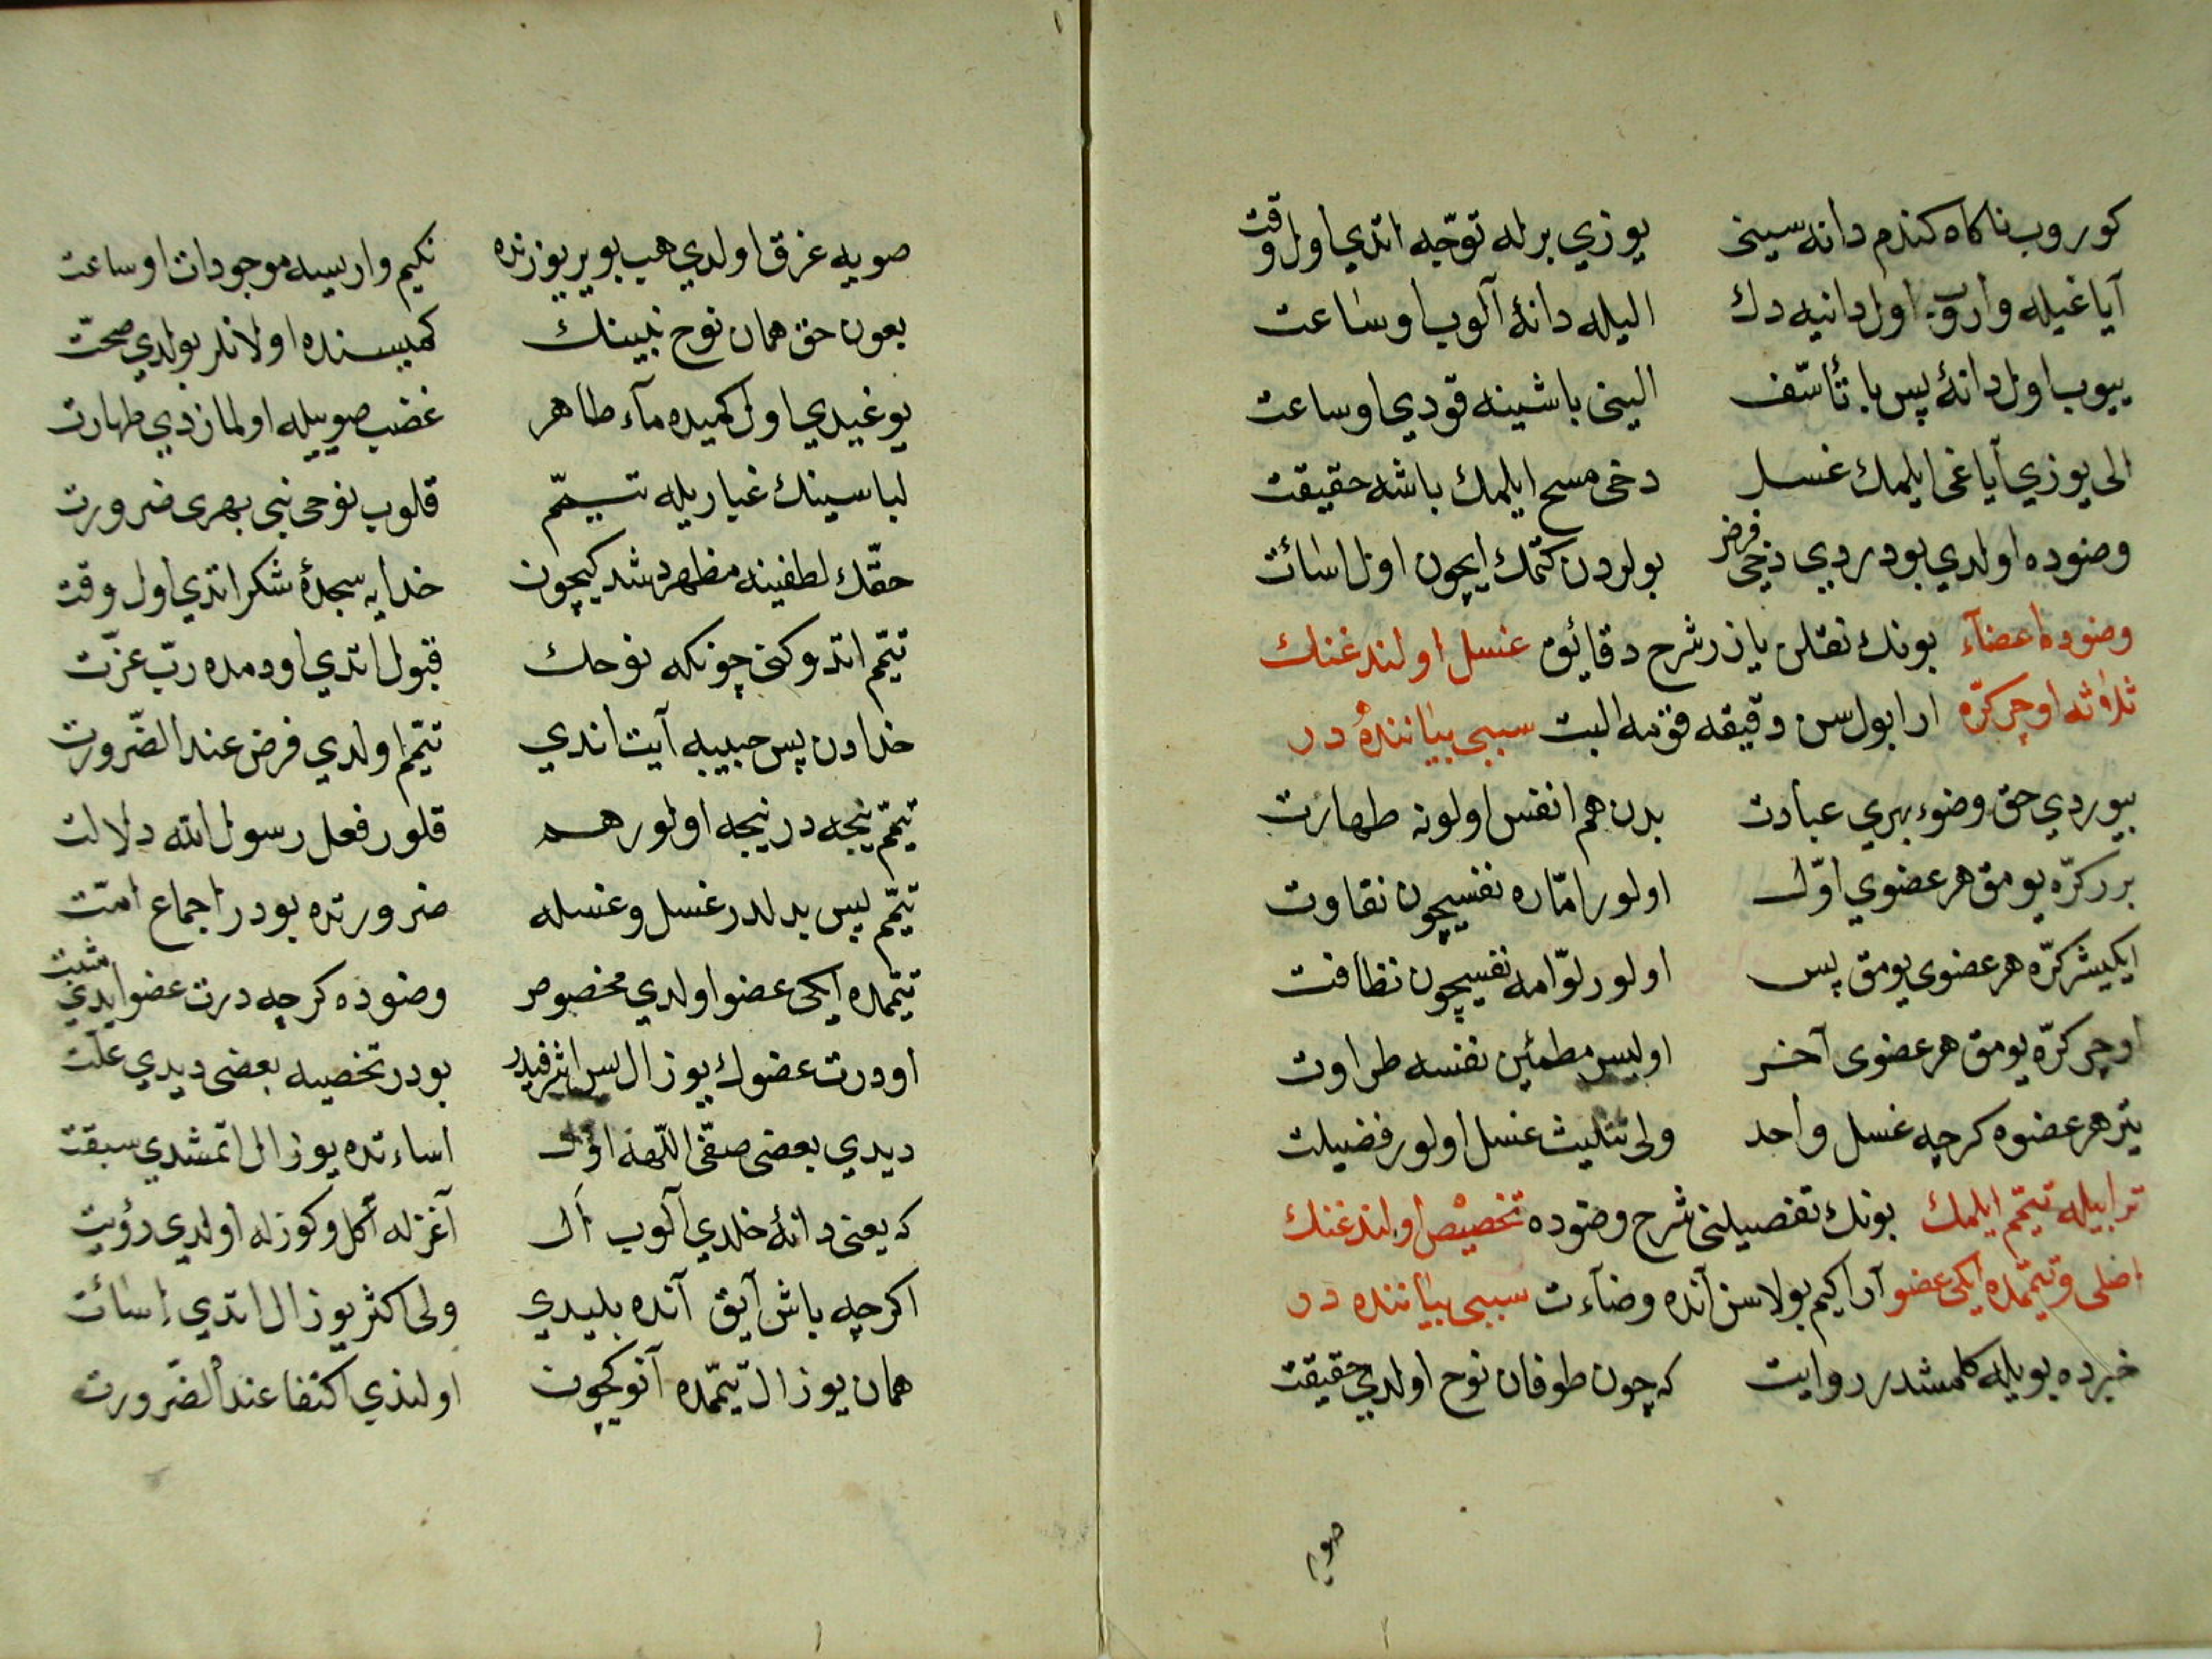 كوروب ناكاه كندم دانه سینی یوزی برله توجّه اتدی اول وقت
آیاغیله واروب اول دانیه دك الیله دانۀ آلوب اوساعت
ییوب اول دانۀ پس با تأسّف الینی باشینه قودی اوساعت
الی یوزی آیاغی ایلمك غسل دخی مسح ایلمك باشه حقیقت
وضوده اولدی بودردی دخی فرض بولردن كتمك ایچون اول اسائت
وضوده اعضآء بونك نقلن یازر شرح دقائق غسل اولندغنك
ثلاثه اوچر كرّه ارا بول سن دقیقه فوتمه البت سببی بیاننده در
بیوردی حق وضوء بهری عبادت بدن هم انفس اولونه طهارت
برر كرّه یومق هر عضوی اوّل اولور امّاره نفسیچون نقاوت
ایكیشر كرّه هر عضوی یومق پس اولور لوّامه نفسیچون نظافت
اوچر كرّه یومق هر عضوی آخر اولیسر مطمئین نفسه طراوت
یتر هر عضوه كرچه غسل واحد ولی تثلیث غسل اولور فضیلت
ترابیله تیمّم ایلمك بونك تفصیلنی شرح وضوده تخصیص اولندغنك
اصلی و تیمّمده ایكی عضو آرا كیم بولاسن آنده وضآءت سببی بیاننده در
خبرده بویله كلمشدر روایت كه چون طوفان نوح اولدی حقیقت
صویه
صویه غرق اولدی هپ بو یر یوزنده نكیم واریسه موجودات اوساعت
بعون حق همان نوح نبینك كمیسنده اولانلر بولدی صحّت
یوغیدی اول كمیده مآء طاهر غضب صوییله اولمازدی طهارت
لباسینك غباریله تیمّم قلوب نوحی نبی بهری ضرورت
حقّك لطفینه مظهر دشدكیچون خدایه سجدۀ شكر اتدی اول وقت
تیمّم اتدوكنی چونكه نوحك قبول اتدی اودمده ربّ عزّت
خدادن پس حبیبه آیت اندی تیمّم اولدی فرض عند الضّرورت
تیمّم نیجه در نیجه اولور هم قلور فعل رسول الله دلالت
تیمّم پس بدلدر غسل و غسله ضرورتده بودر اجماع امّت
تیمّمده ایكی عضو اولدی مخصوص وضوده كرچه درت عضو ایدی مثبت
اودرت عضوك یوز ال پس اشرفیدر بودر تخصیه بعضی دیدی علّت
دیدی بعضی صفّی اللّهه اوّل اساءتده یوز ال اتمشدی سبقت
كه یعنی دانۀ خلدی آلوب ال آغزله اكل و كوزله اولدی رؤیت
اكرچه باش آیق آنده بلیدی ولی اكثر یوز ال اتدی اسائت
همان یوز ال تیمّمده آنوكیچون اولندی اكتفا عند الضّرورت